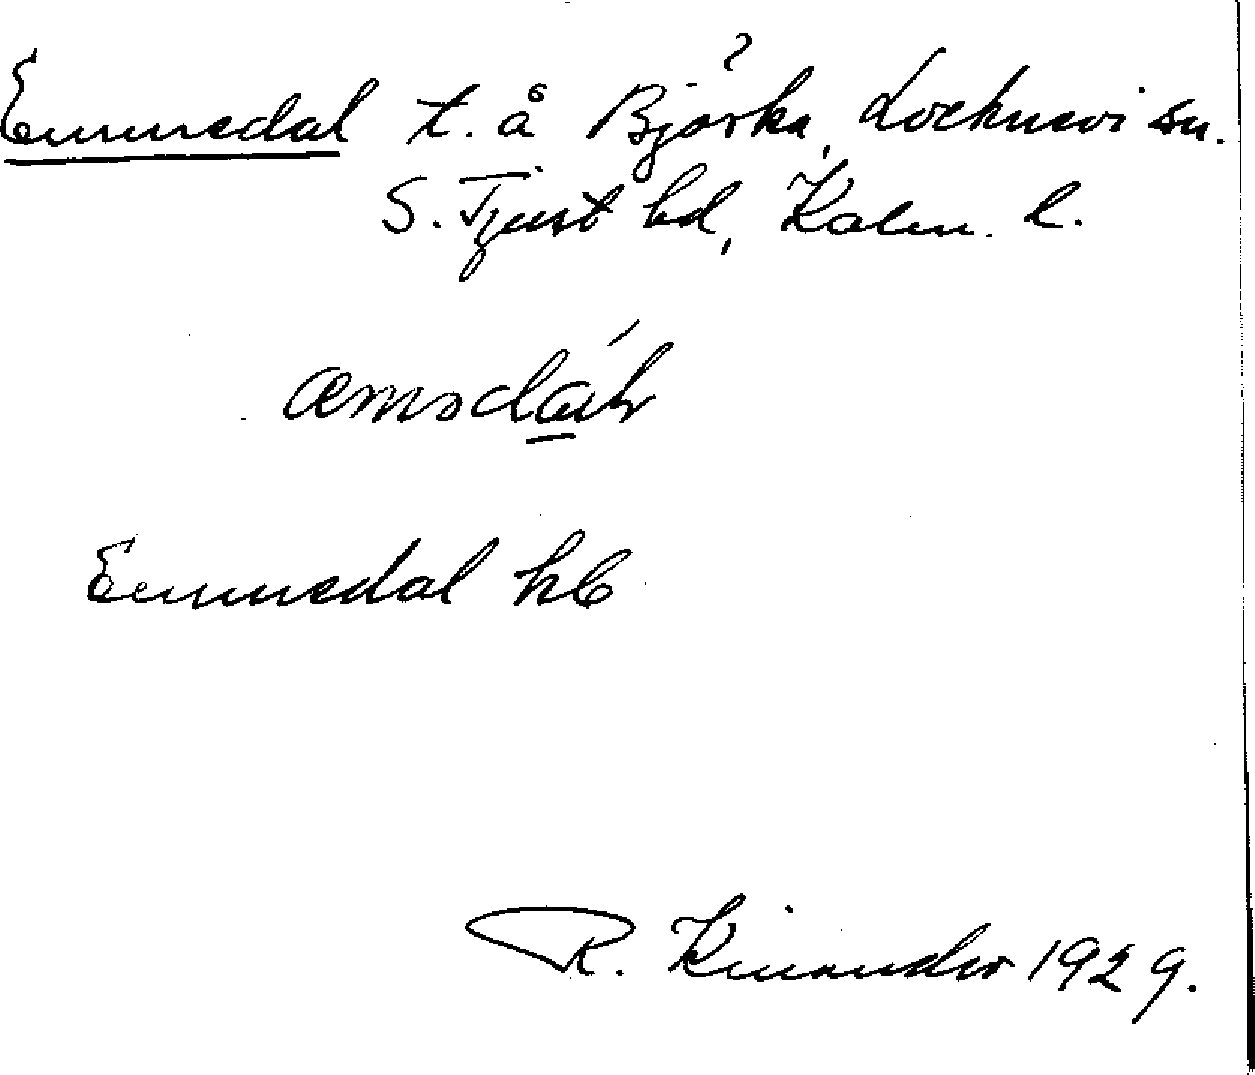 Emmedal t. å Björka, Locknevi sn.
S. Tjust hd, Kalm. l.
Emmedal hb
R. Kinander 1929.